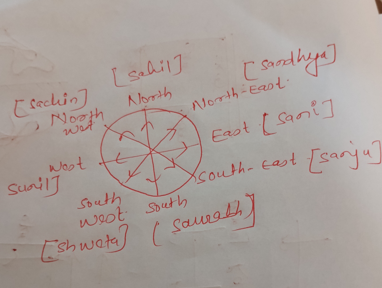 [sahil]
[sandhya]
[sachin]
North
North-East
North
west
East [sani]
West
sunil]
South-East [sanju]
South
West
South
[shweta]
(saurabh]